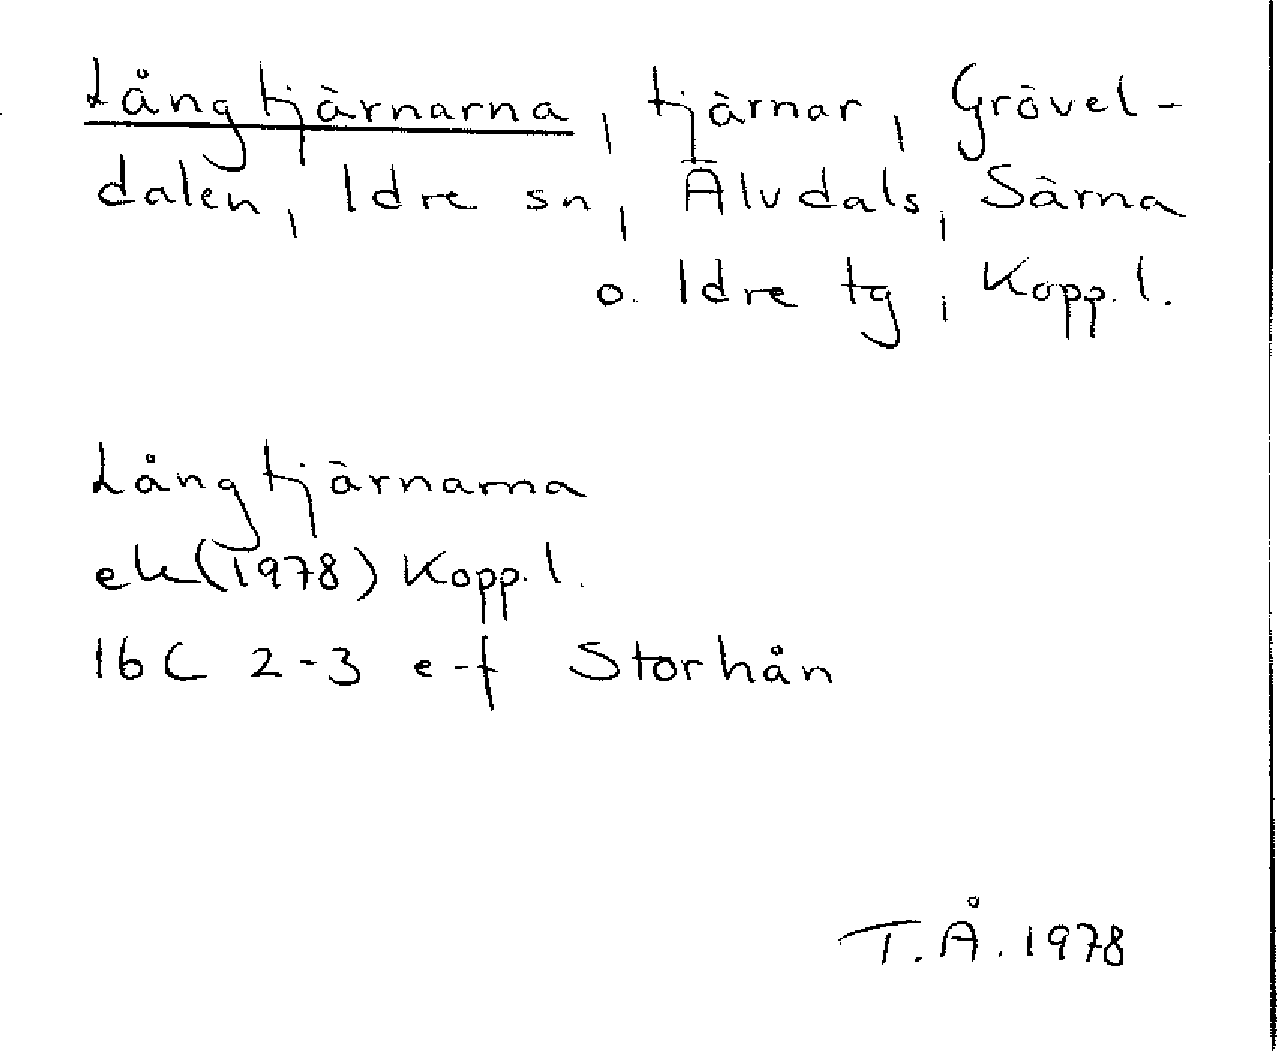 Långtjärnarna, tjärnar, Grövel-
dalen, Idre sn, Älvdals, Särna
o. Idre tg, Kopp. l.
Långtjärnarna
ek (1978) Kopp. l.
16C 2-3 e-f Storhån
T.Å. 1978